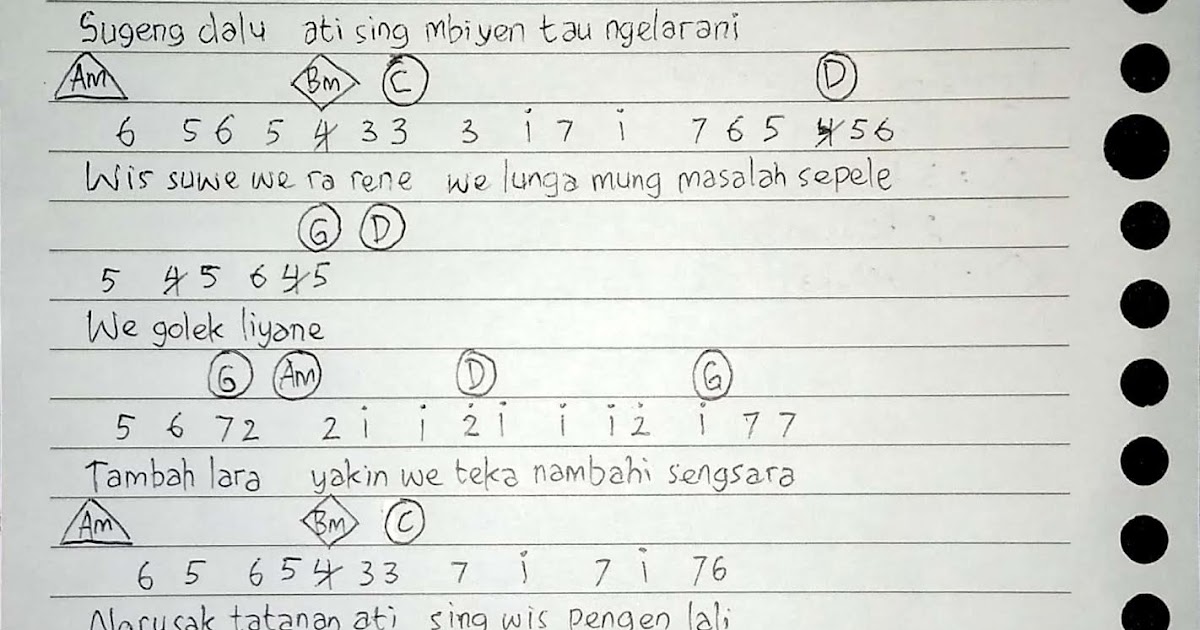 Sugeng dalu ati sing mbiyen tau ngelarani
Am Bm C D
6 5 6 5 4 3 3 3 i 7 i 7 6 5 4 5 6
Wis suwe we ra rene we lunga mung masalah sepele
G D
5 4 5 6 4 5
We golek liyane
G Am D G
5 6 7 2 2 i i 2̇ i i i 2̇ i 7 7
Tambah lara yakin we teka nambahi sengsara
Am Bm C
6 5 6 5 4 3 3 7 i 7 i 7 6
Ngrusak tatanan ati sing wis pengen lali